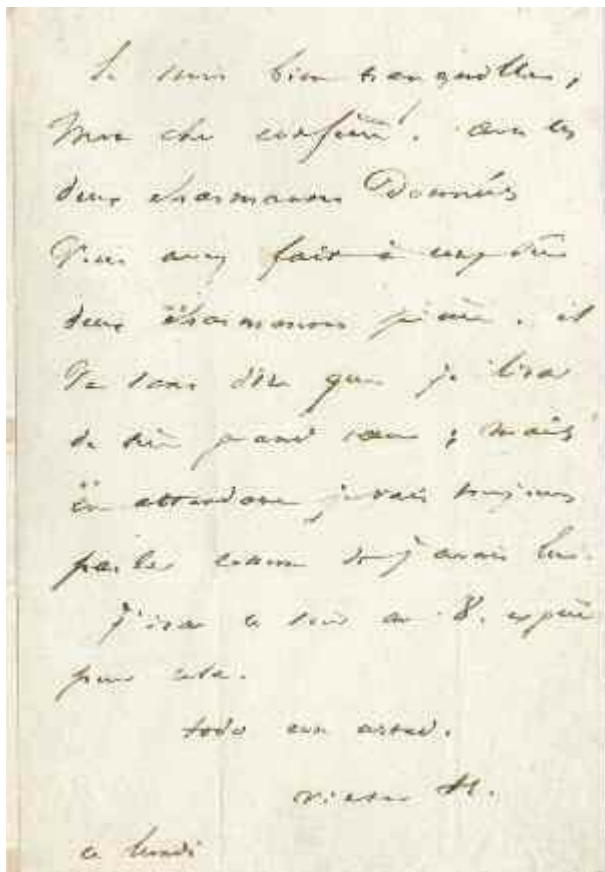 Je suis bien tranquille,
Mon cher confrère. avec les
deux charmantes Données
Vous avez fait à coup sûr
deux charmantes pièces. il
Va sans dire que je lirai
de très grand cœur ; mais
en attendant je vais toujours
parler comme si j'avais lu.
J'irai ce soir au exprès
pour cela.
todo con usted.
Victor H.
ce lundi